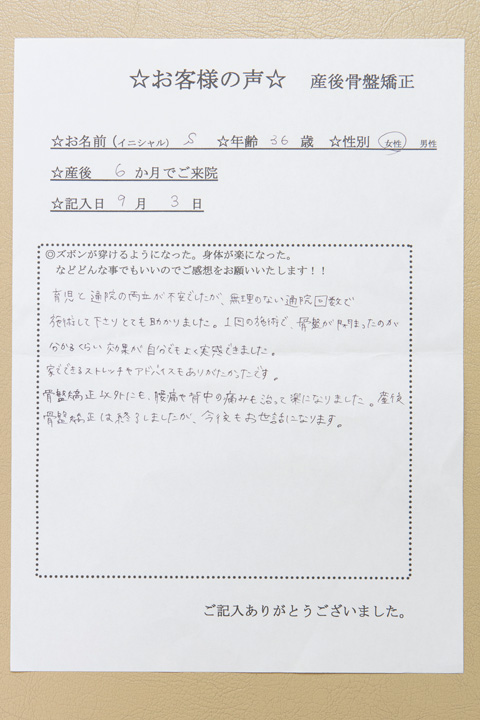 ☆お客様の声☆ 産後骨盤矯正
☆お名前(イニシャル) S ☆年齢 36 歳 ☆性別 女性 男性
☆産後 6 か月でご来院
☆記入日 9 月 3 日
◎ズボンが穿けるようになった。身体が楽になった。
などどんな事でもいいのでご感想をお願いいたします!!
育児と通院の両立が不安でしたが、無理のない通院回数で
施術して下さりとても助かりました。1回の施術で、骨盤が閉まったのが
分かるくらい効果が自分でもよく実感できました。
家でできるストレッチやアドバイスもありがたかったです。
骨盤矯正以外にも、腰痛や背中の痛みも治って楽になりました。産後
骨盤矯正は終了しましたが、今後もお世話になります。
ご記入ありがとうございました。